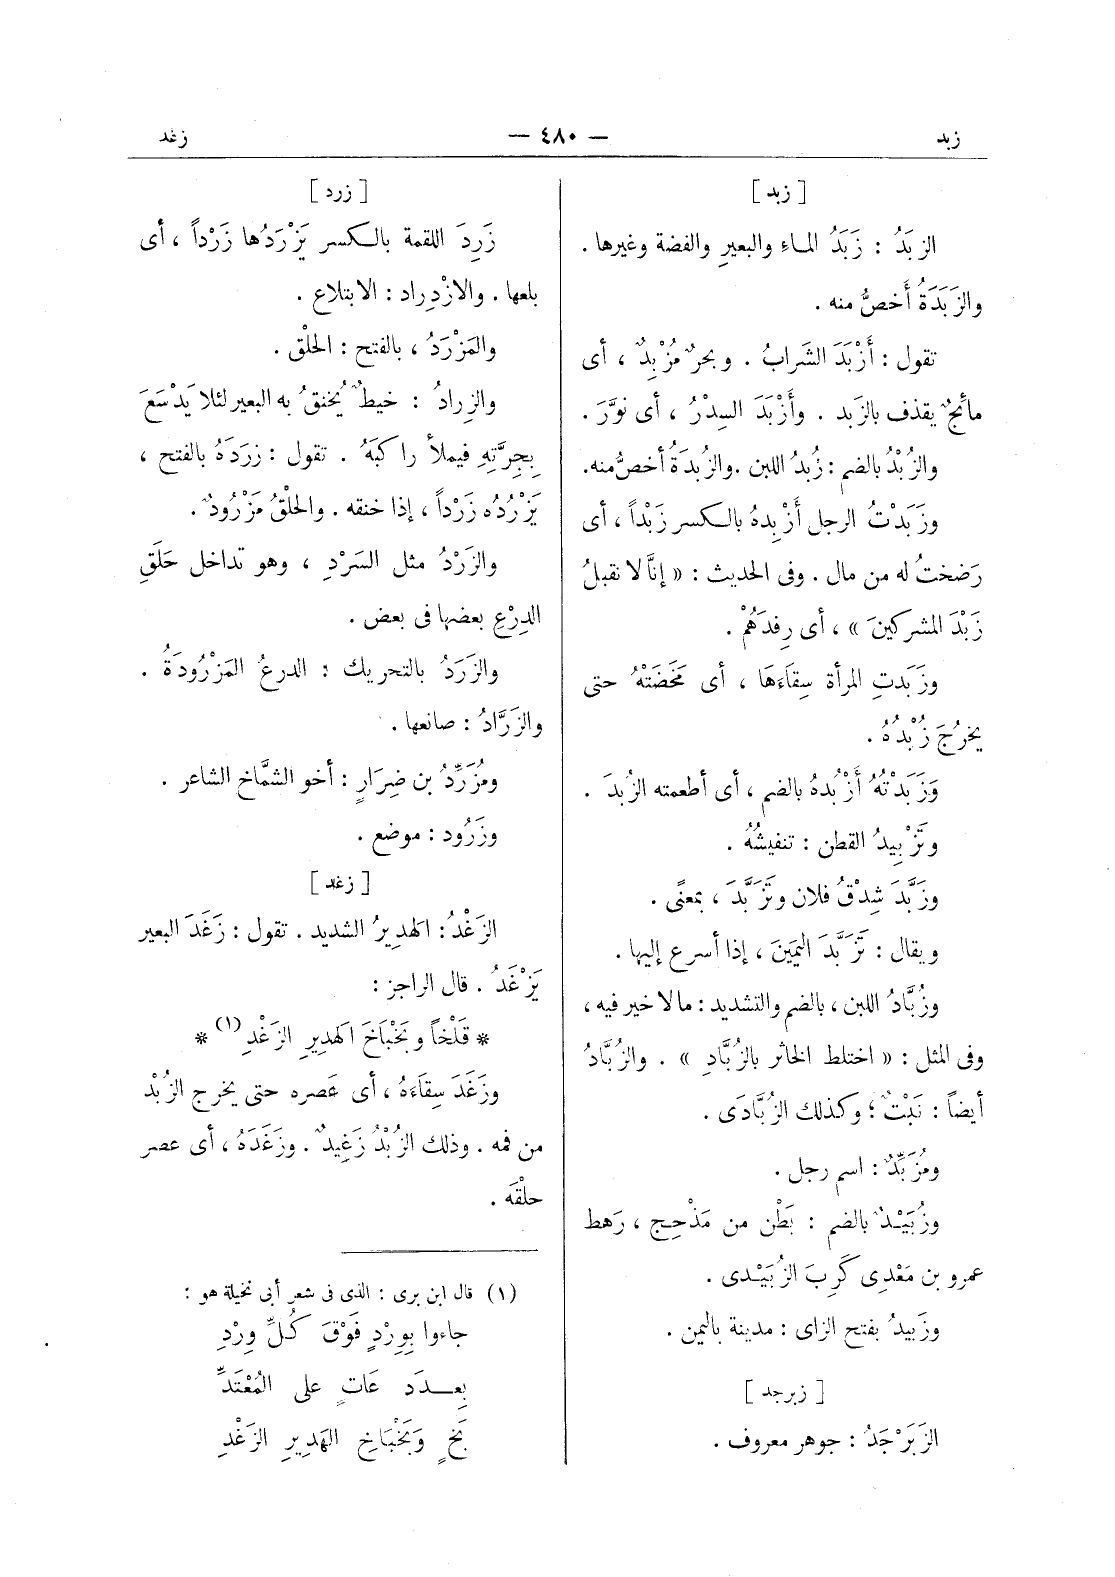 زبد — ٤٨٠ — زغد
[ زبد ]
الزبَدُ : زَبَدُ الماءِ والبعيرِ والفضة وغيرها .
والزَبَدَةُ أَخصُّ منه .
تقول : أَزْبَدَ الشَرابُ . وبحرٌ مُزْبِدٌ ، أى
مائجٌ يقذف بالزَبد . وأَزْبَدَ السِدْرُ ، أى نَوَّرَ .
والزُبْدُ بالضم : زُبدُ اللبن . والزُبدَةُ أخصُّ منه .
وزَبَدْتُ الرجل أَزْبِدهُ بالكسر زَبْداً ، أى
رَضختُ له من مال . وفى الحديث : « إنَّا لا نقبلُ
زَبْدَ المشركينَ » ، أى رِفدَهُمْ .
وزَبَدتِ المرأة سِقَاءَهَا ، أى مَخَضَتْهُ حتى
يخرُجَ زُبْدُهُ .
وَزَبَدْتُهُ أَزْبُدهُ بالضم ، أى أطعمته الزُبدَ .
وتَزْبِيدُ القطن : تنفيشُهُ .
وزَبَّدَ شِدْقُ فلان وتَزَبَّدَ ، بمعنًى .
ويقال : تَزَبَّدَ اليمَينَ ، إذا أسرع إليها .
وزُبَّادُ اللبن ، بالضم والتشديد : مالا خير فيه ،
وفى المثل : « اختلط الخاثر بالزُبَّادِ » . والزُبَّادُ
أيضاً : نَبْتٌ ؛ وكذلك الزُبَّادَى .
ومُزَبِّدٌ : اسم رجل .
وزُبَيْدٌ بالضم : بَطْن من مَذْحِج ، رَهط
عمرو بن مَعْدِى كَرِبَ الزُبَيْدى .
وزَبيدُ بفتح الزاى : مدينة باليمن .
[ زبرجد ]
الزَبَرْجَدُ : جوهر معروف .
[ زرد ]
زَرِدَ اللقمة بالكسر يَزْرَدُها زَرْداً ، أى
بلعها . والازْدِراد : الابتلاع .
والمَزْرَدُ ، بالفتح : الحلْق .
والزِرادُ : خيطٌ يُخنقُ به البعير لئلا يَدْسَعَ
بِجِرَّتِهِ فيملأ راكبَهُ . تقول : زرَدَهُ بالفتح ،
يَزْرُدُه زَرْداً ، إذا خنقه . والحلْقُ مَزْرُودٌ .
والزَرْدُ مثل السَرْدِ ، وهو تداخل حَلَقِ
الدِرْعِ بعضها فى بعض .
والزَرَدُ بالتحريك : الدرعُ المَزْرُودَةُ .
والزَرَّادُ : صانعها .
ومُزَرِّدُ بن ضِرَارٍ : أخو الشمَّاخ الشاعر .
وزَرُود : موضع .
[ زغد ]
الزَغْدُ : الهديرُ الشديد . تقول : زَغَدَ البعير
يَزْغَدُ . قال الراجز :
* قَلْخاً وبَخْبَاخَ الهديرِ الزَغْدِ (١) *
وزَغَدَ سِقَاءَهُ ، أى عَصره حتى يخرج الزُبْد
من فمه . وذلك الزُبْدُ زَغِيدٌ . وزَغَدَهُ ، أى عصر
حلْقَه .
(١) قال ابن برى : الذى فى شعر أبى نخيلة هو :
جاءوا بِوِرْدٍ فَوْقَ كُلِّ وِرْدِ
بِعــدَد عَاتٍ على المُعْتَدِّ
بَخٍ وَبَخْبَاخِ الهَدِيرِ الزَغْدِ